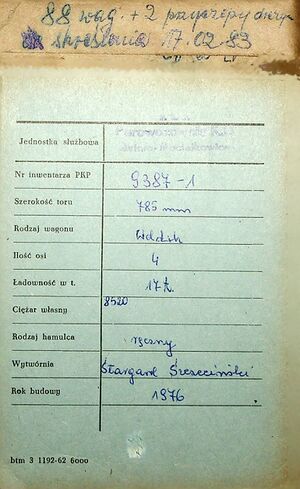 88 wag. + 2 przyczepy
skreślenia 17.02.83
Jednostka służbowa
Nr inwentarza PKP 9387-1
Szerokość toru 785 mm
Rodzaj wagonu Wddxh
Ilość osi 4
Ładowność w t. 17 t.
Ciężar własny 8520
Rodzaj hamulca ręczny
Wytwórnia Stargard Szczeciński
Rok budowy 1976
btm 3 1192-62 6000